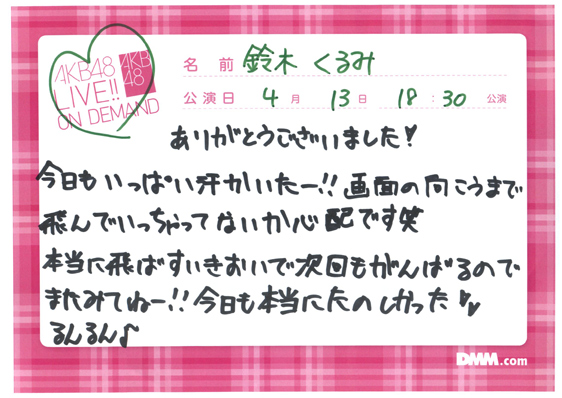 AKB48
LIVE!!
ON DEMAND
AKB
48
名 前 鈴木 くるみ
公演日 4 月 13 日 18 : 30 公演
ありがとうございました!
今日もいっぱい汗かいたー!! 画面の向こうまで
飛んでいっちゃってないか心配です笑
本当に飛ばすいきおいで次回もがんばるので
またみてねー!! 今日も本当にたのしかった♡♡
るんるん♪
DMM.com